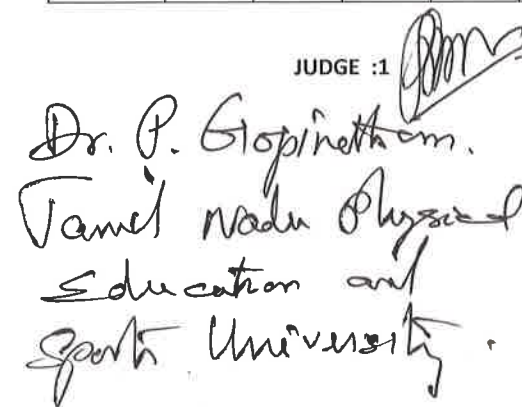 JUDGE :1
Dr. P. Gopinetham.
Tamil Nadu Physical
Education and
Sports University.